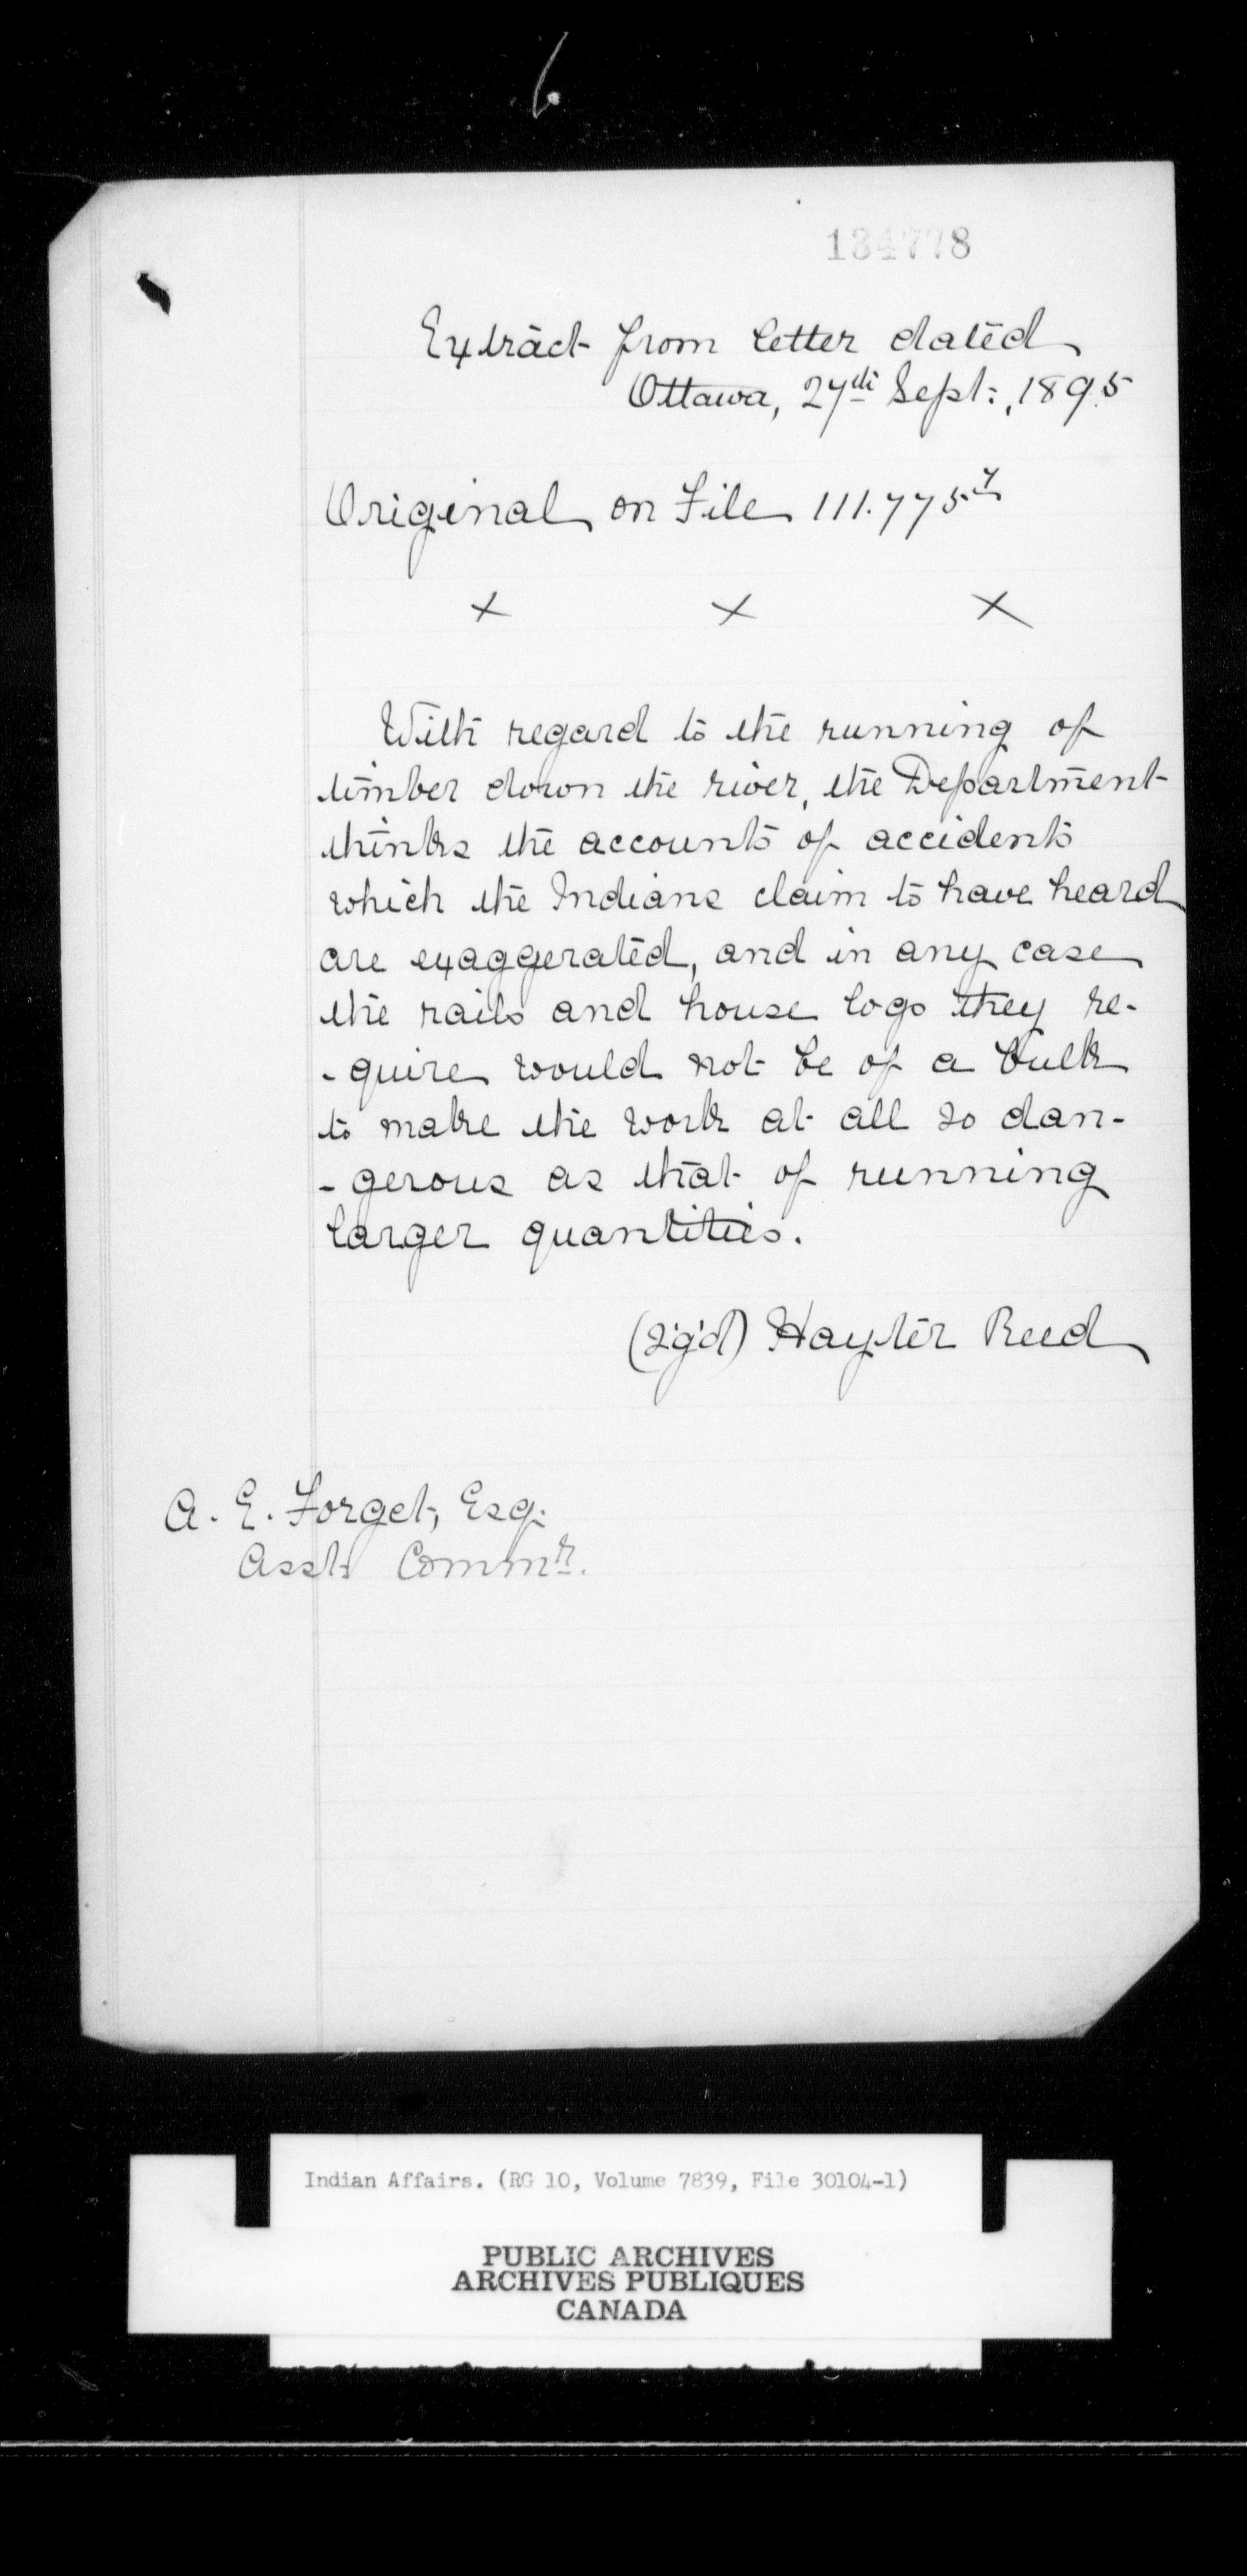 6
134778
Extract from letter dated
Ottawa, 27th Sept:, 1895
Original on File 111.775-7
x x x
With regard to the running of
timber down the river, the Department
thinks the accounts of accidents
which the Indians claim to have heard
are exaggerated, and in any case
the rails and house logs they re-
-quire would not be of a bulk
to make the work at all so dan-
-gerous as that of running
larger quantities.
(sg'd) Hayter Reed
A. E. Forget, Esq:
Asst. Commr.
Indian Affairs. (RG 10, Volume 7839, File 30104-1)
PUBLIC ARCHIVES
ARCHIVES PUBLIQUES
CANADA